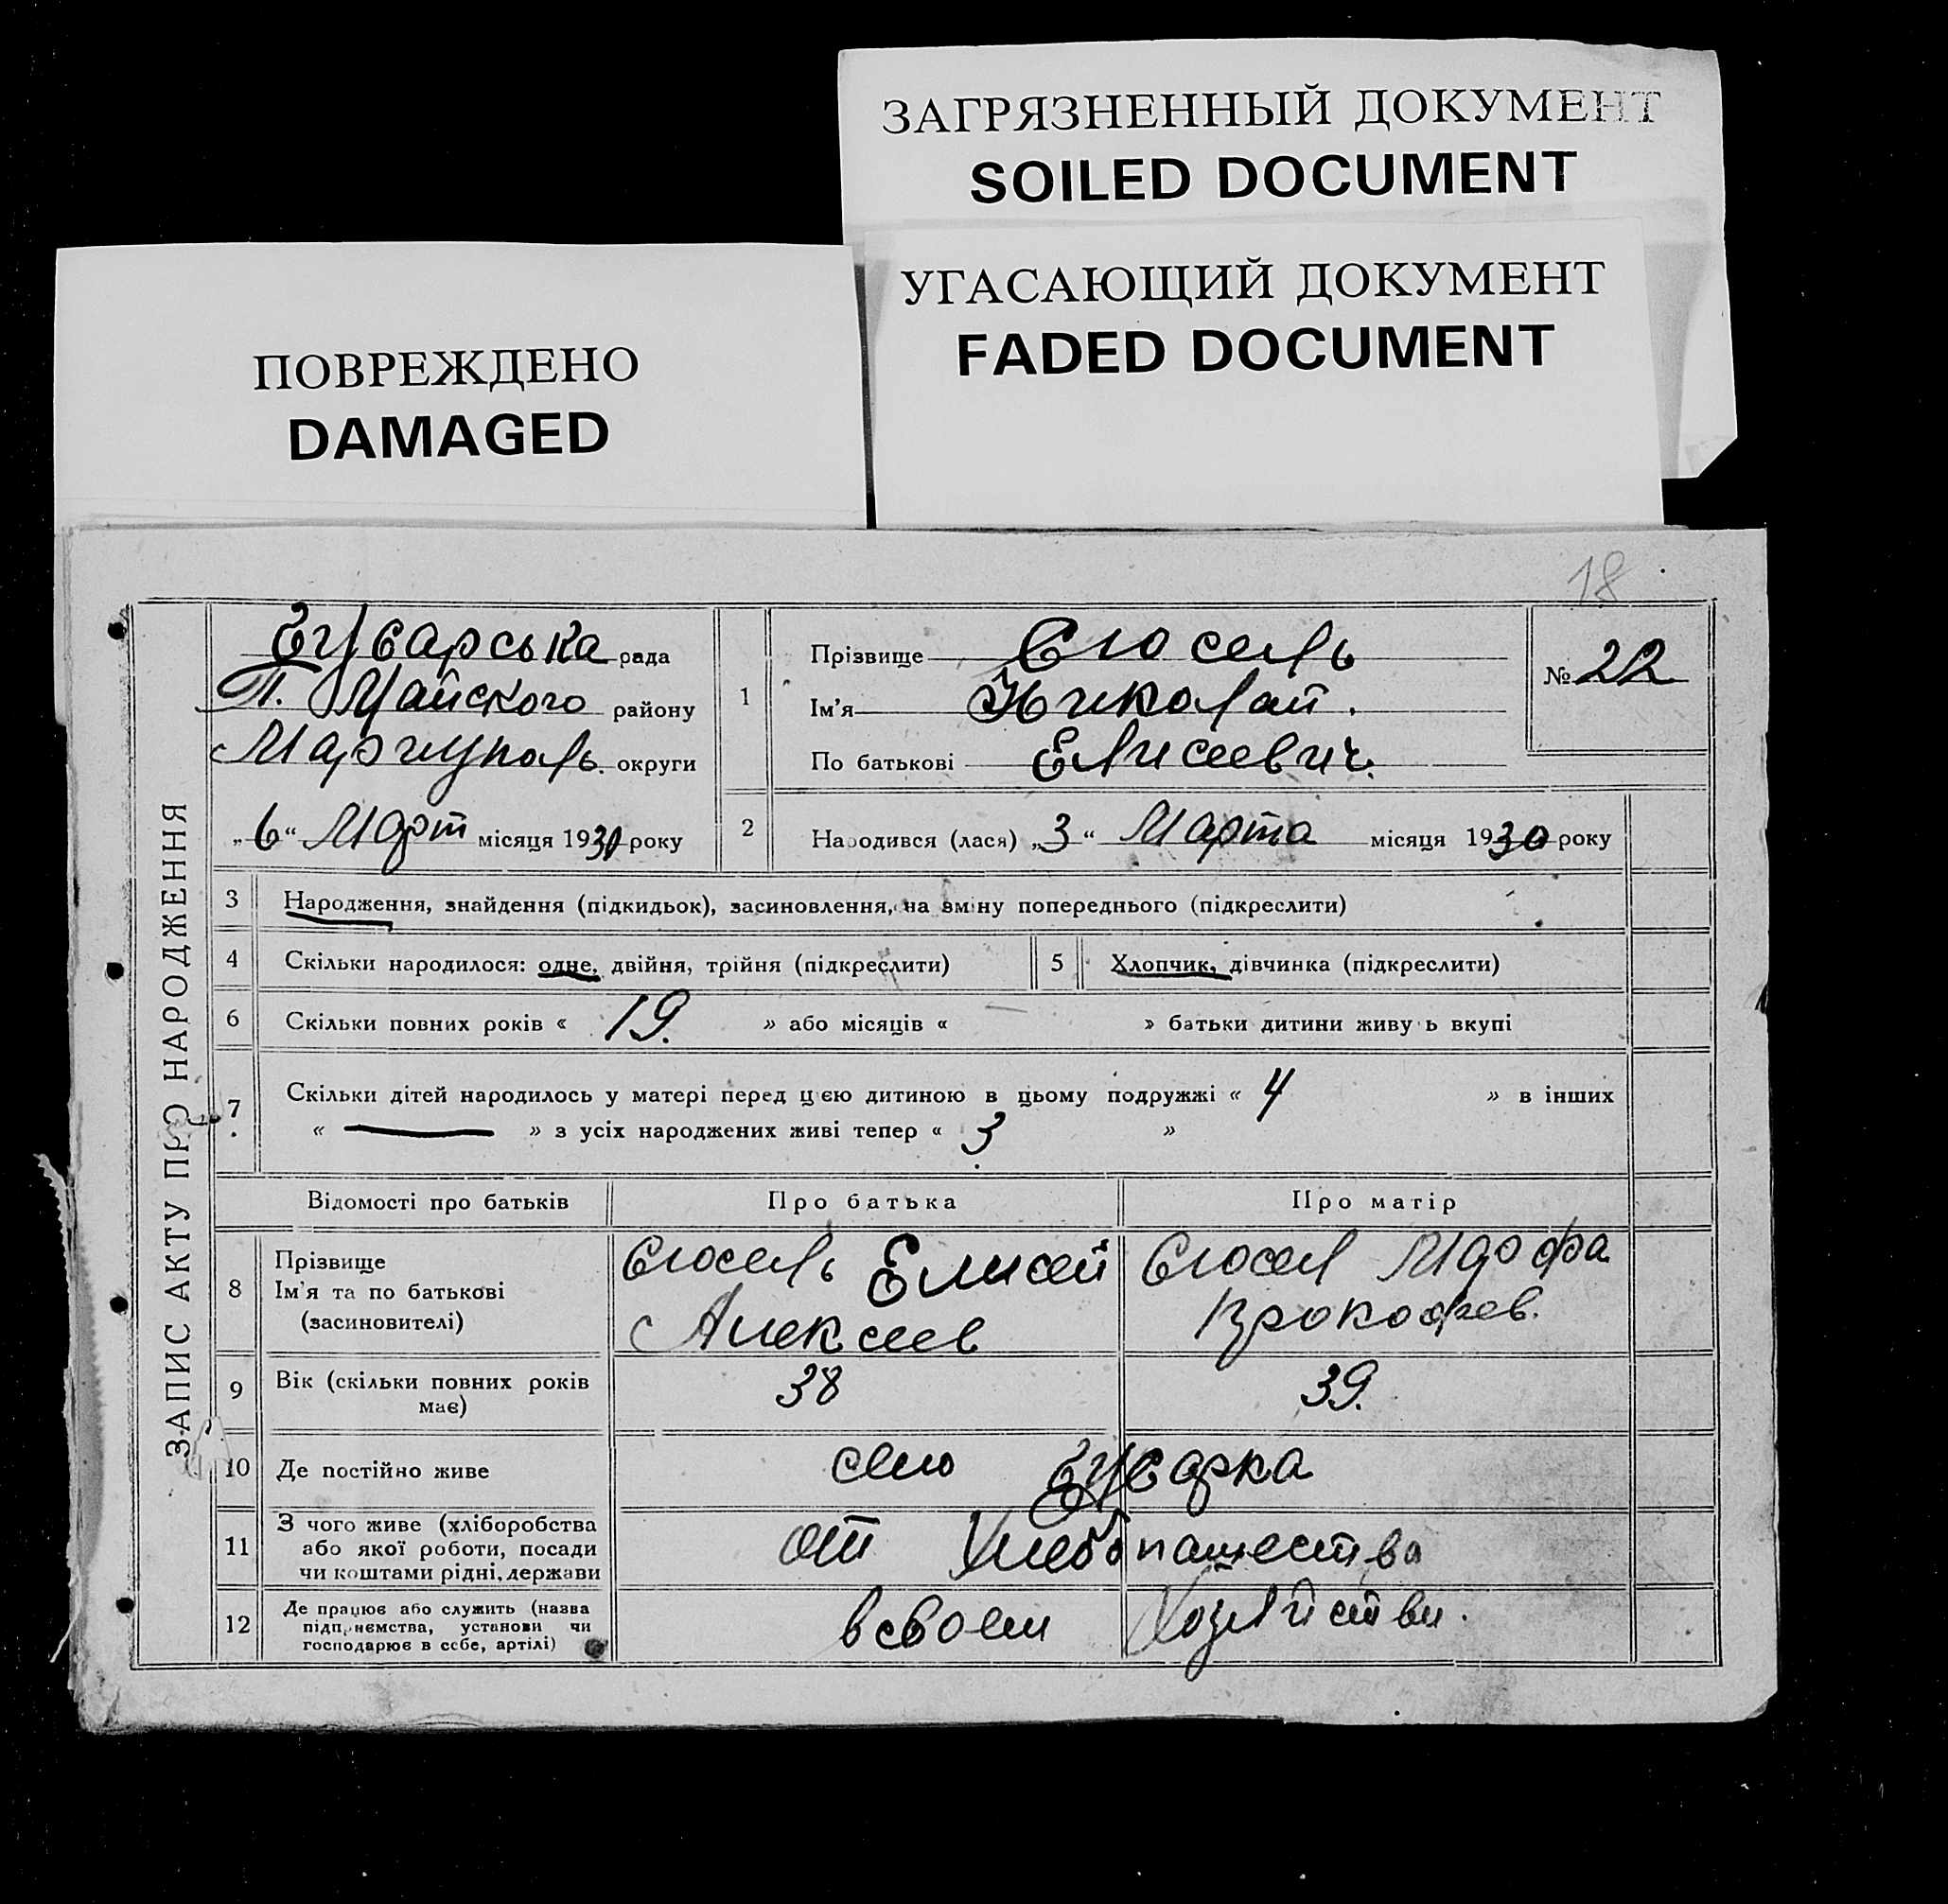 ЗАГРЯЗНЕННЫЙ ДОКУМЕНТ
SOILED DOCUMENT
УГАСАЮЩИЙ ДОКУМЕНТ
FADED DOCUMENT
ПОВРЕЖДЕНО
DAMAGED
18
ЗАПИС АКТУ ПРО НАРОДЖЕННЯ
рада
П. Майского району
Мариуполь. округи
„6“ Март місяця 1930 року
1
Прізвище
Ім'я Николай.
По батькові Елисеевич.
№ 22
2 Народився (лася) „3“ Марта місяця 1930 року
3 Народження, знайдення (підкидьок), засиновлення, на зміну попереднього (підкреслити)
4 Скільки народилося: одне, двійня, трійня (підкреслити)
5 Хлопчик, дівчинка (підкреслити)
6 Скільки повних років « 19. » або місяців « — » батьки дитини живуть вкупі
7 Скільки дітей народилось у матері перед цією дитиною в цьому подружжі « 4 » в інших
« — » з усіх народжених живі тепер « 3 »
Відомості про батьків Про батька Про матір
8 Прізвище
Ім'я та по батькові
(засиновителі)
Елисей
Алексеев
Марфа
Прокофев.
9 Вік (скільки повних років має) 38 39.
10 Де постійно живе село
11 З чого живе (хліборобства
або якої роботи, посади
чи коштами рідні, держави
от Хлебопашества
12 Де працює або служить (назва
підприємства, установи чи
господарює в себе, артілі)
в своем Хозяйстви.